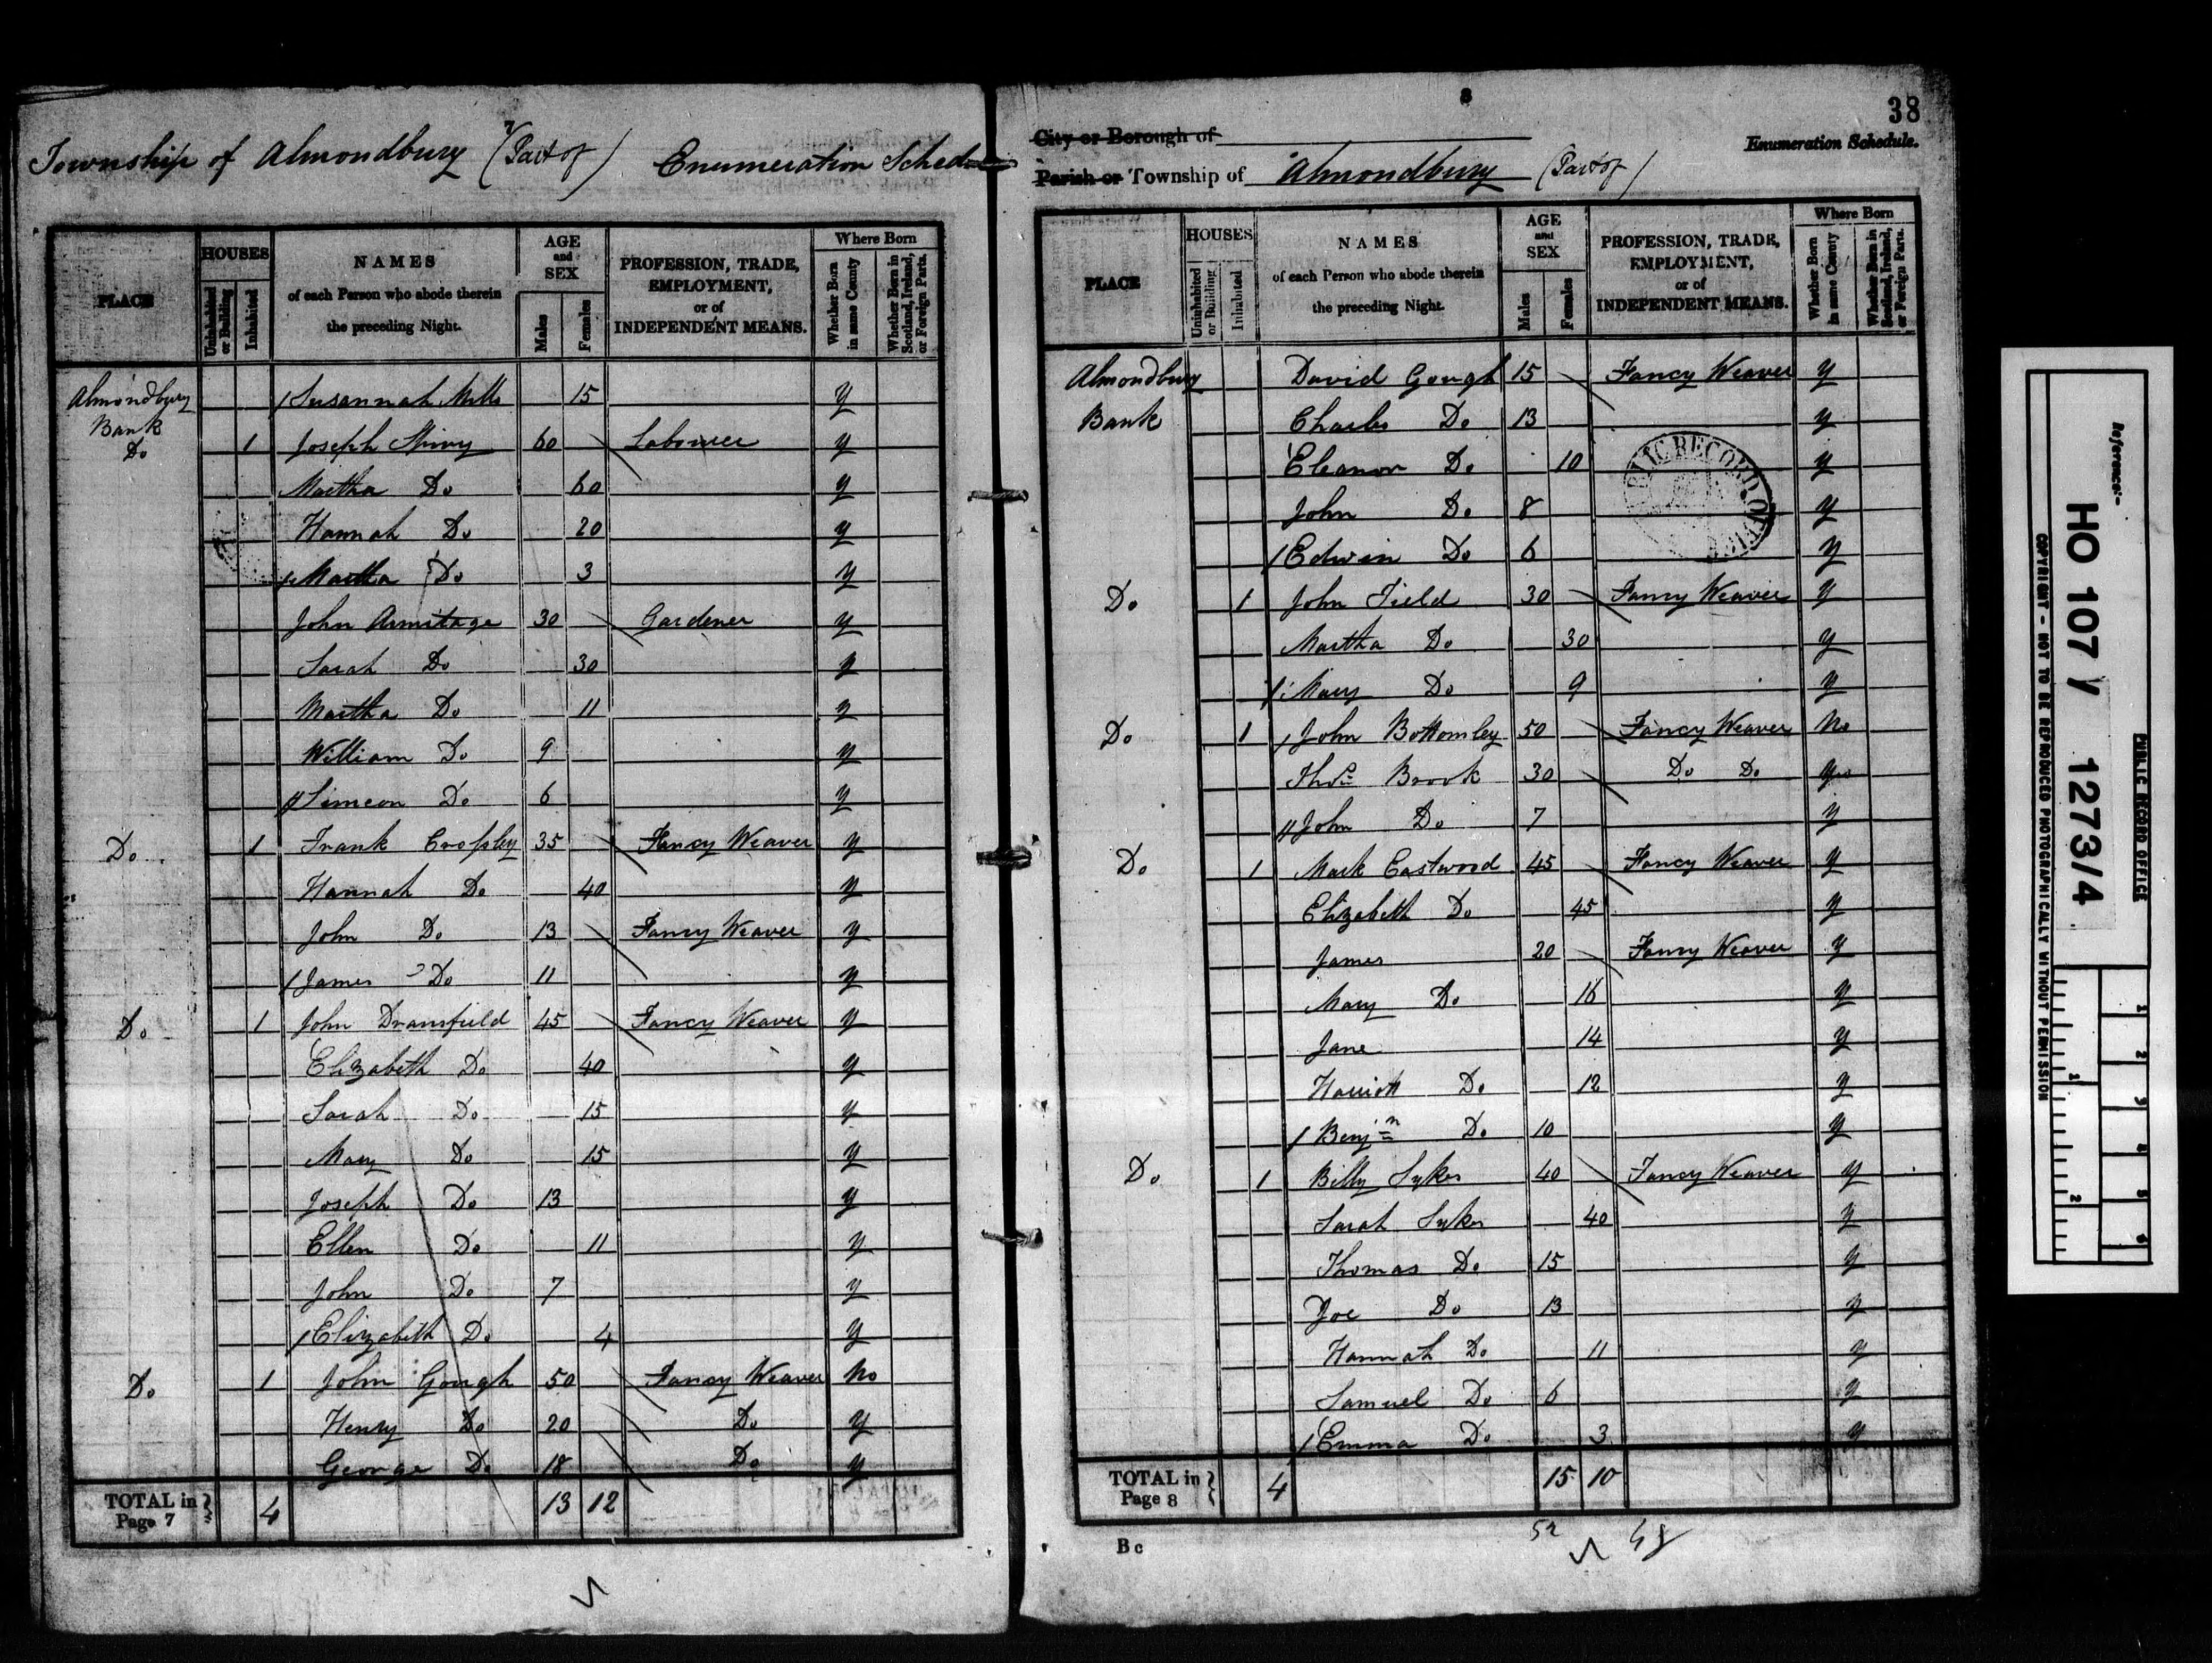 7
Township of Almondbury (Part of) Enumeration Sched
PLACE
HOUSES
Uninhabited or Building
Inhabited
NAMES
of each Person who abode therein
the preceding Night.
AGE
and
SEX
Males
Females
PROFESSION, TRADE,
EMPLOYMENT,
or of
INDEPENDENT MEANS.
Where Born
Whether Born in same County
Whether Born in Scotland, Ireland, or Foreign Parts.
Almondbury Susannah Mills 15 y
Bank
Do 1 Joseph Spivy 60 Labourer y
Martha Do 60 y
Hannah Do 20 y
Martha Do 3 y
John Armitage 30 Gardener y
Sarah Do 30 y
Martha Do 11 y
William Do 9 y
Simeon Do 6 y
Do 1 Frank Crossley 35 Fancy Weaver y
Hannah Do 40 y
John Do 13 Fancy Weaver y
James Do 11 y
Do 1 John Dransfield 45 Fancy Weaver y
Elizabeth Do 40 y
Sarah Do 15 y
Mary Do 15 y
Joseph Do 13 y
Ellen Do 11 y
John Do 7 y
Elizabeth Do 4 y
Do 1 John Gough 50 Fancy Weaver No
Henry Do 20 Do y
George Do 18 Do y
TOTAL in Page 7 4 13 12
8
38
City or Borough of
Enumeration Schedule.
Parish or Township of Almondbury (Part of)
PLACE
HOUSES
Uninhabited or Building
Inhabited
NAMES
of each Person who abode therein
the preceding Night.
AGE
and
SEX
Males
Females
PROFESSION, TRADE,
EMPLOYMENT,
or of
INDEPENDENT MEANS.
Where Born
Whether Born in same County
Whether Born in Scotland, Ireland, or Foreign Parts.
Almondbury David Gough 15 Fancy Weaver y
Bank Charles Do 13 y
Eleanor Do 10 y
John Do 8 y
Edwin Do 6 y
Do 1 John Field 30 Fancy Weaver y
Martha Do 30 y
Mary Do 9 y
Do 1 John Bottomley 50 Fancy Weaver No
Thos Brook 30 Do Do yes
John Do 7 y
Do 1 Mark Eastwood 45 Fancy Weaver y
Elizabeth Do 45 y
James 20 Fancy Weaver y
Mary Do 16 y
Jane 14 y
Harriott Do 12 y
Benjn Do 10 y
Do 1 Billy Sykes 40 Fancy Weaver y
Sarah Sykes 40 y
Thomas Do 15 y
Joe Do 13 y
Hannah Do 11 y
Samuel Do 6 y
Emma Do 3 y
TOTAL in Page 8 4 15 10
B c
Reference:-
HO 107 / 1273/4
PUBLIC RECORD OFFICE
COPYRIGHT - NOT TO BE REPRODUCED PHOTOGRAPHICALLY WITHOUT PERMISSION
1 2 3 4 5 6
1 2